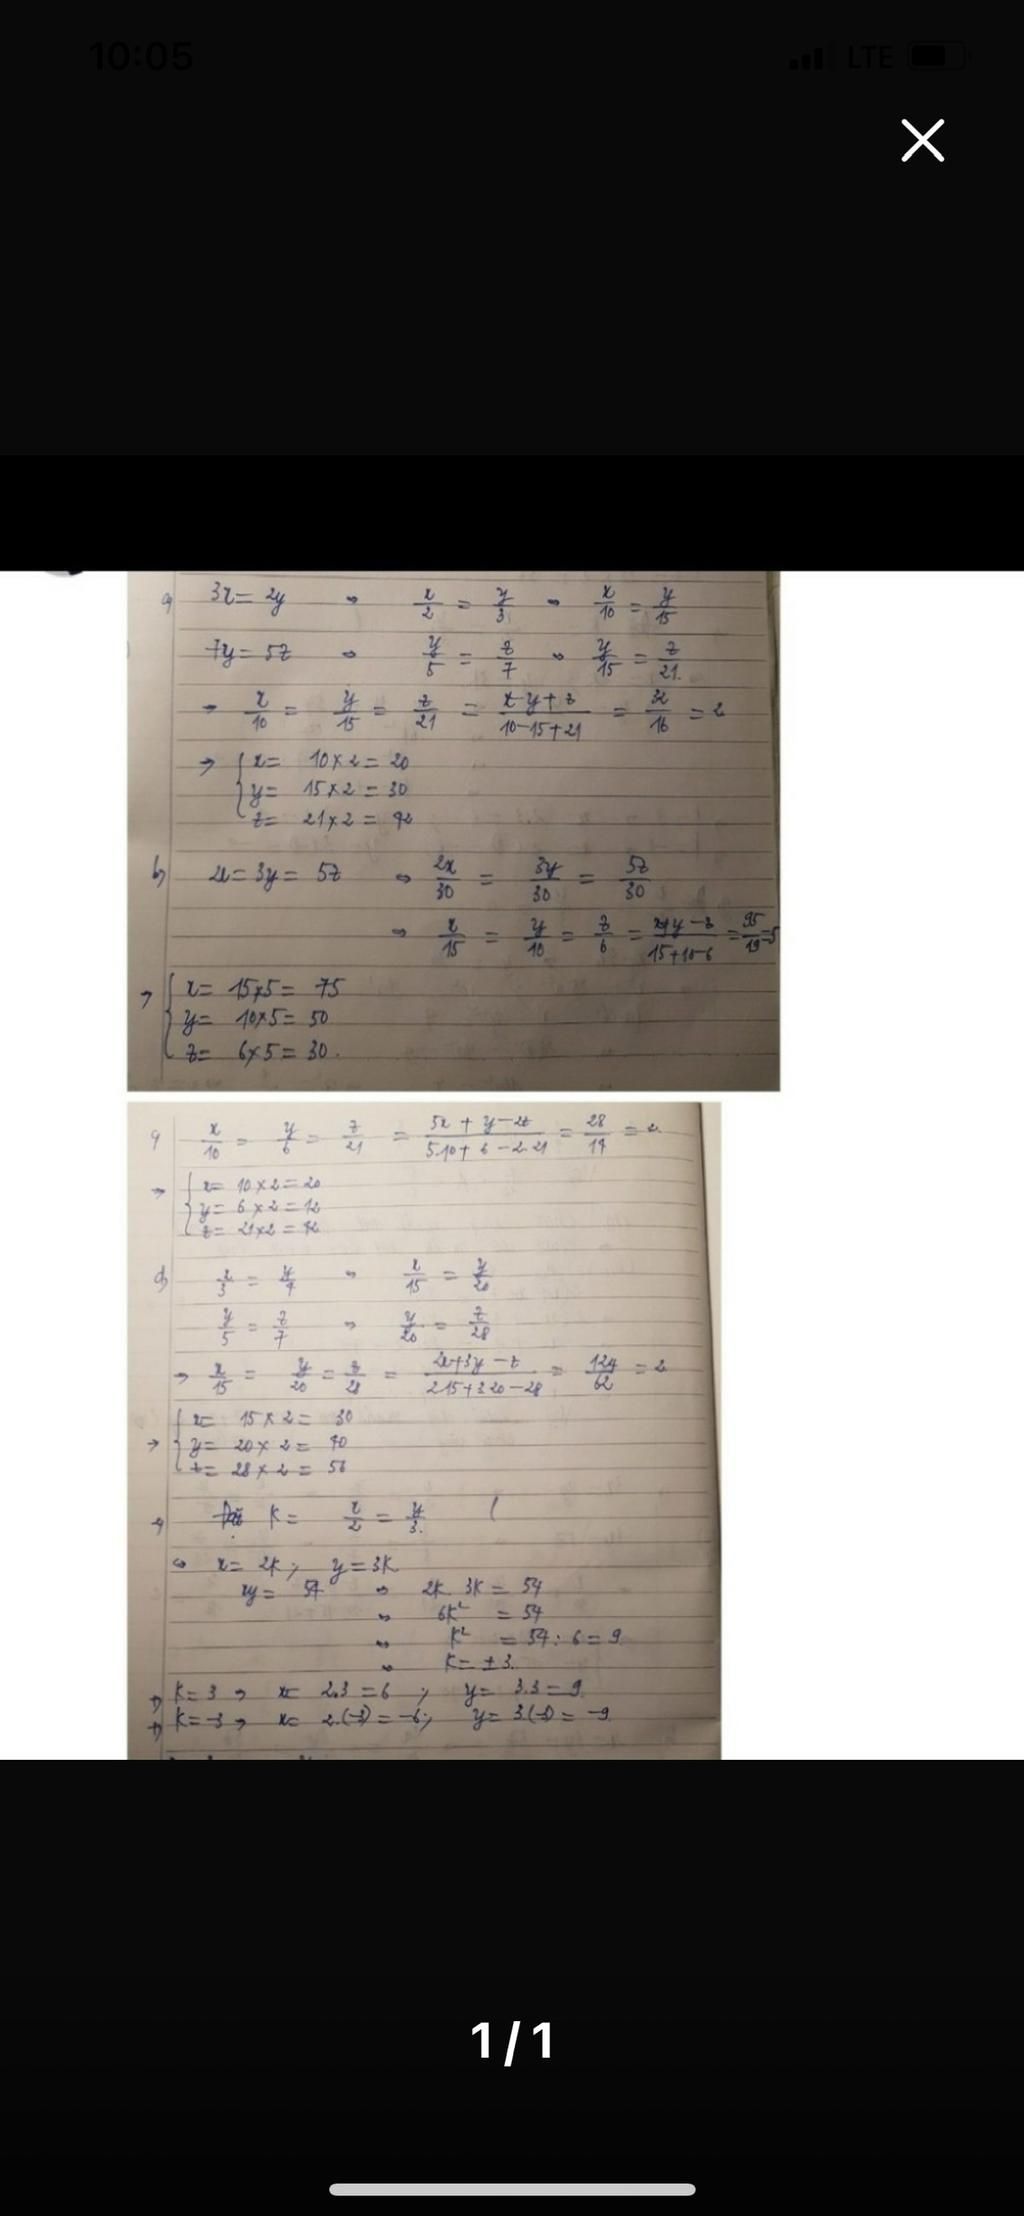 10:05
LTE
a, 3x = 2y ⇒ x/2 = y/3 ⇒ x/10 = y/15
7y = 5z ⇒ y/5 = z/7 ⇒ y/15 = z/21.
⇒ x/10 = y/15 = z/21 = x-y+z/10-15+21 = 32/16 = 2
⇒ { x = 10×2 = 20
y = 15×2 = 30
z = 21×2 = 42
b, 2x = 3y = 5z ⇒ 2x/30 = 3y/30 = 5z/30
⇒ x/15 = y/10 = z/6 = x+y-z/15+10-6 = 95/19 = 5
⇒ { x = 15×5 = 75
y = 10×5 = 50
z = 6×5 = 30.
c, x/10 = y/6 = z/21 = 5x + y - 2z/5.10 + 6 - 2.21 = 28/14 = 2
⇒ { x = 10×2 = 20
y = 6×2 = 12
z = 21×2 = 42
d, x/3 = y/4 ⇒ x/15 = y/20
y/5 = z/7 ⇒ y/20 = z/28
⇒ x/15 = y/20 = z/28 = 2x+3y-z/2.15+3.20-28 = 124/62 = 2
⇒ { x = 15×2 = 30
y = 20×2 = 40
z = 28×2 = 56
K = x/2 = y/3.
⇒ x = 2K; y = 3K
xy = 54 ⇒ 2K. 3K = 54
⇒ 6K² = 54
⇒ K² = 54 : 6 = 9
⇒ K = ±3.
K = 3 ⇒ x = 2.3 = 6; y = 3.3 = 9
K = -3 ⇒ x = 2.(-3) = -6; y = 3.(-3) = -9.
1/1